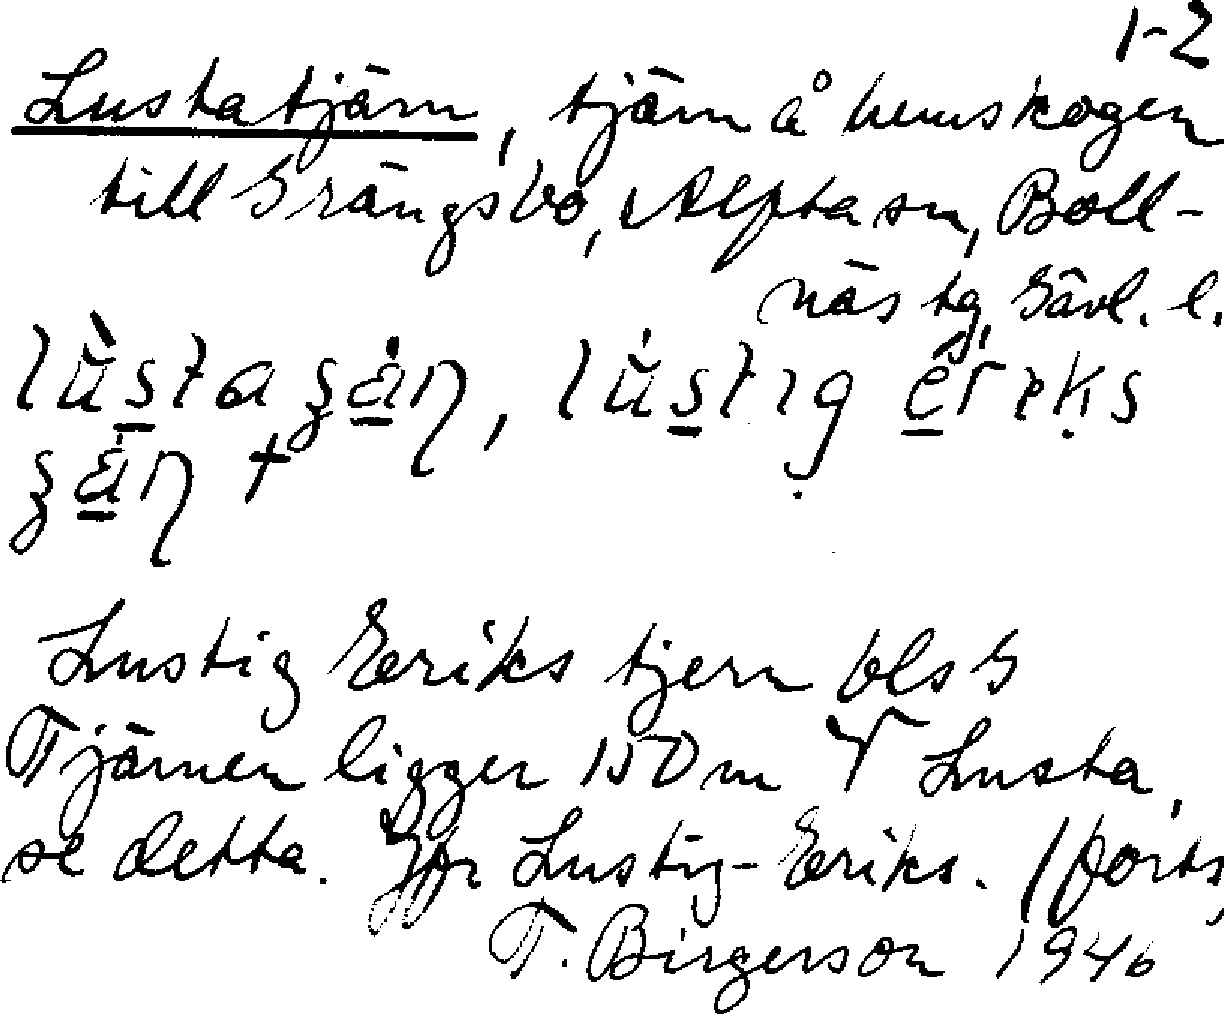 1-2
Lustatjärn, tjärn å hemskogen
till Grängsbo, Alfta sn, Boll-
näs tg, Gävl. l.
lùstaʂä́ṇ, lústig ériks
ʂä́ṇ †
Lustig Eriks tjern blsG
Tjärnen ligger 150 m V Lusta,
se detta. Jfr Lustig-Eriks. (forts.
T. Birgerson 1946